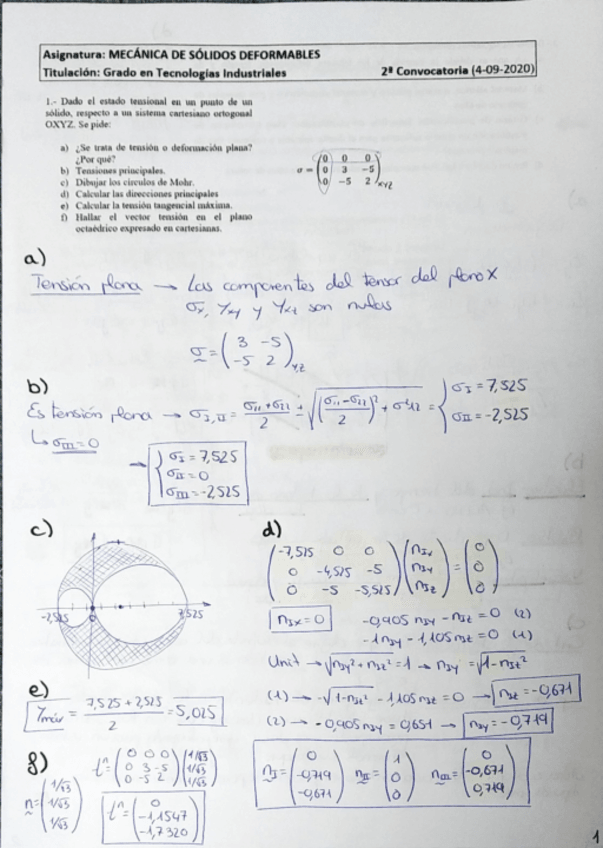 Asignatura: MECÁNICA DE SÓLIDOS DEFORMABLES
Titulación: Grado en Tecnologías Industriales 2ª Convocatoria (4-09-2020)
1.- Dado el estado tensional en un punto de un
sólido, respecto a un sistema cartesiano ortogonal
OXYZ. Se pide:
a) ¿Se trata de tensión o deformación plana?
¿Por qué?
b) Tensiones principales.
c) Dibujar los círculos de Mohr.
d) Calcular las direcciones principales
e) Calcular la tensión tangencial máxima.
f) Hallar el vector tensión en el plano
octaédrico expresado en cartesianas.
σ = (0 0 0
0 3 -5
0 -5 2) XYZ
a)
Tensión plana → Las componentes del tensor del plano X
σx, γxy y γxz son nulas
σ = (3 -5
-5 2) Y,Z
b)
Es tensión plana → σI,II = (σ11 + σ22)/2 ± √(((σ11 - σ22)/2)² + σ²12) = { σI = 7,525
σII = -2,525
↳ σIII = 0
→ { σI = 7,525
σII = 0
σIII = -2,525
c)
-2,525 0 7,525
d)
(-7,525 0 0
0 -4,525 -5
0 -5 -5,525) (nIx
nIy
nIz) = (0
0
0)
nIx = 0 -0,905 nIy - nIz = 0 (2)
-1nIy - 1,105nIz = 0 (1)
Unit → √(nIy² + nIz²) = 1 → nIy = √(1-nIz²)
(1) → -√(1-nIz²) - 1,105 nIz = 0 → nIz = -0,671
(2) → -0,905nIy = 0,651 → nIy = -0,719
nI = (0
-0,719
-0,671) nII = (1
0
0) nIII = (0
-0,671
0,719)
e)
γmáx = (7,525 + 2,525)/2 = 5,025
f)
n = (1/√3
1/√3
1/√3)
tⁿ = (0 0 0
0 3 -5
0 -5 2) (1/√3
1/√3
1/√3)
tⁿ = (0
-1,1547
-1,7320)
1